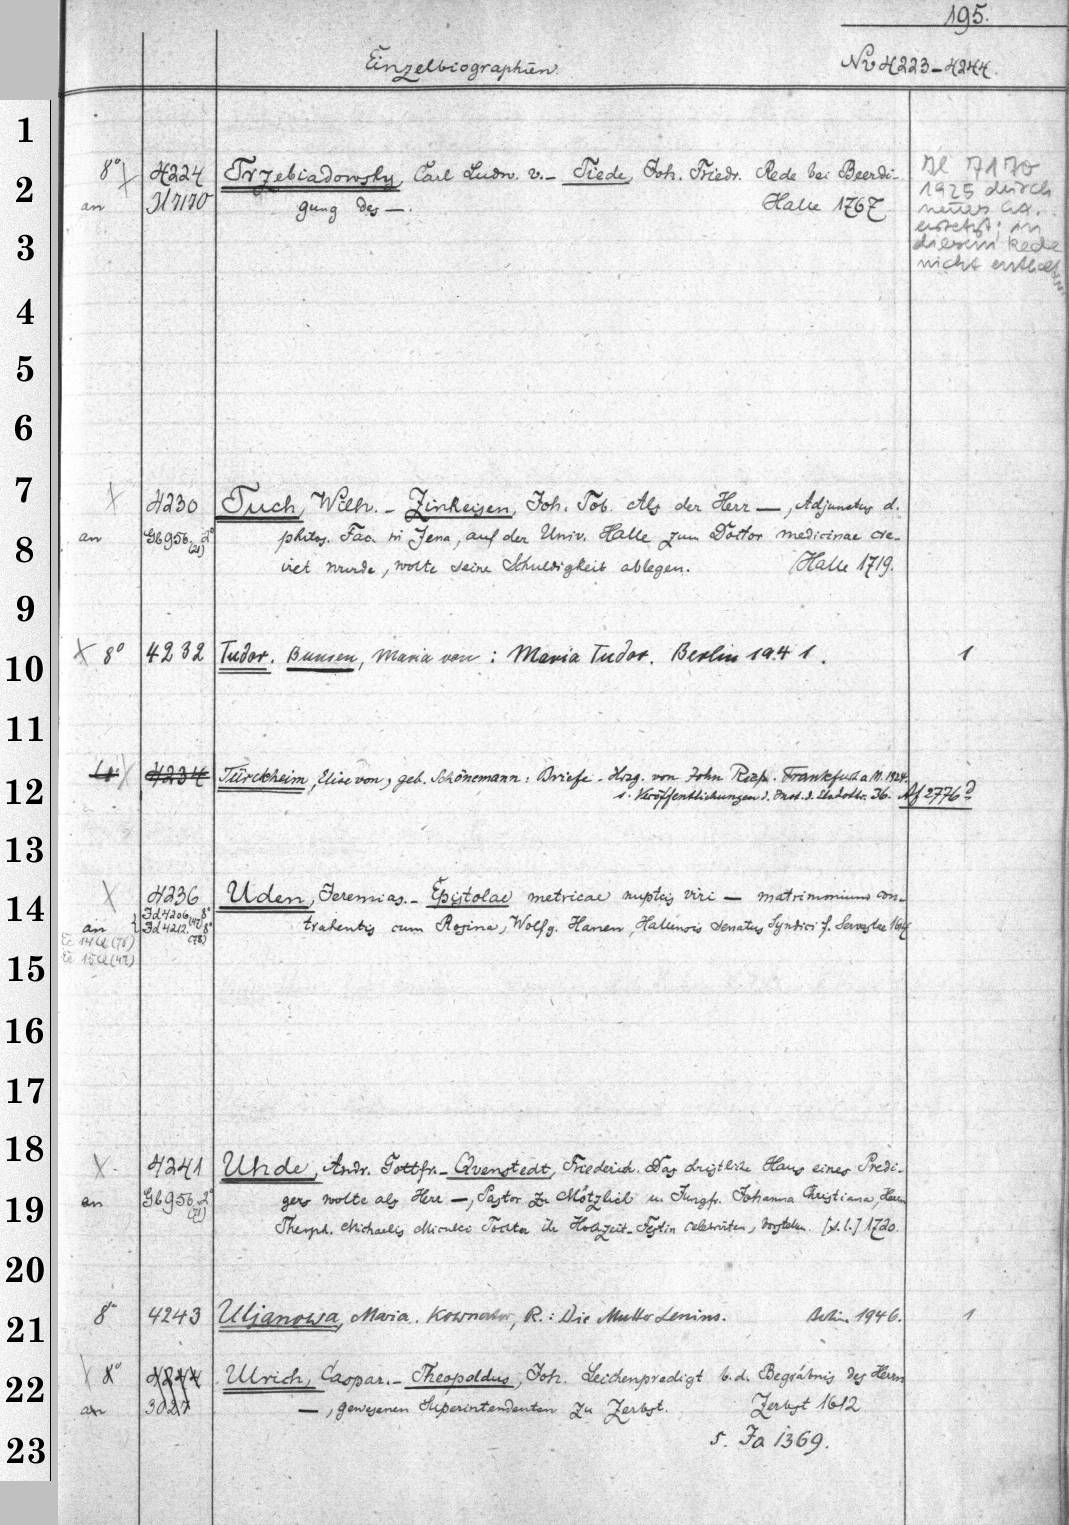 195.
Einzelbiographien.
No 4223-4244.
1
2
3
4
5
6
7
8
9
10
11
12
13
14
15
16
17
18
19
20
21
22
23
8° 4224 Trzebiadowsky, Carl Ludw. v.- Tiede, Joh. Friedr. Rede bei Beerdi-
an Il 7170 gung des —. Halle 1767
Il 7170
1925 durch
neues
ersetzt; in
diesem Rede
nicht enthalten
X 4230 Tuch, Wilh. - Zinkeisen, Joh. Tob. Als der Herr —, Adjunctus d.
an Gb 956. 2° (21) philos. Fac. in Jena, auf der Univ. Halle zum Doctor medicinae cre-
iret wurde, wolte seine Schuldigkeit ablegen. Halle 1719.
X 8° 4232 Tudor. Bunsen, Maria von: Maria Tudor. Berlin 1941. 1
4234 Türckheim, Elise von, geb. Schönemann: Briefe. Hrsg. von John Ries. Frankfurt a M. 1924.
s. Veröffentlichungen d. Inst. d. 36. Af 2776
X 4236 Uden, Jeremias.- Epistolae metricae nuptiis viri — matrimonium con-
an Id 4206 (47) 8° Id 4212 (78) 8° trahentis cum Rosina, Wolfg. Hanen, Hallensis senatus Syndici f. Servestae
X 4241 Uhde, Andr. Gottfr.- Qvenstedt, Friederich. Das christliche Haus eines Predi-
an Gb 956. 2° (71) gers wolte als Herr —, Pastor zu Mötzlich u. Jungfr. Johanna Christiana, Herrn
Theoph. Michaelis Tochter ihr Hochzeit-Festin celebrirten, vorstellen. [s. l.] 1720.
8° 4243 Uljanowa, Maria. Kownator, R.: Die Mutter Lenins. Berlin 1946. 1
8° 4244 Ulrich, Caspar.- Theopoldus, Joh. Leichenpredigt b. d. Begräbnis des Herrn
an 3027 —, gewesenen Superintendenten zu Zerbst. Zerbst 1612
s. Ia 1369.